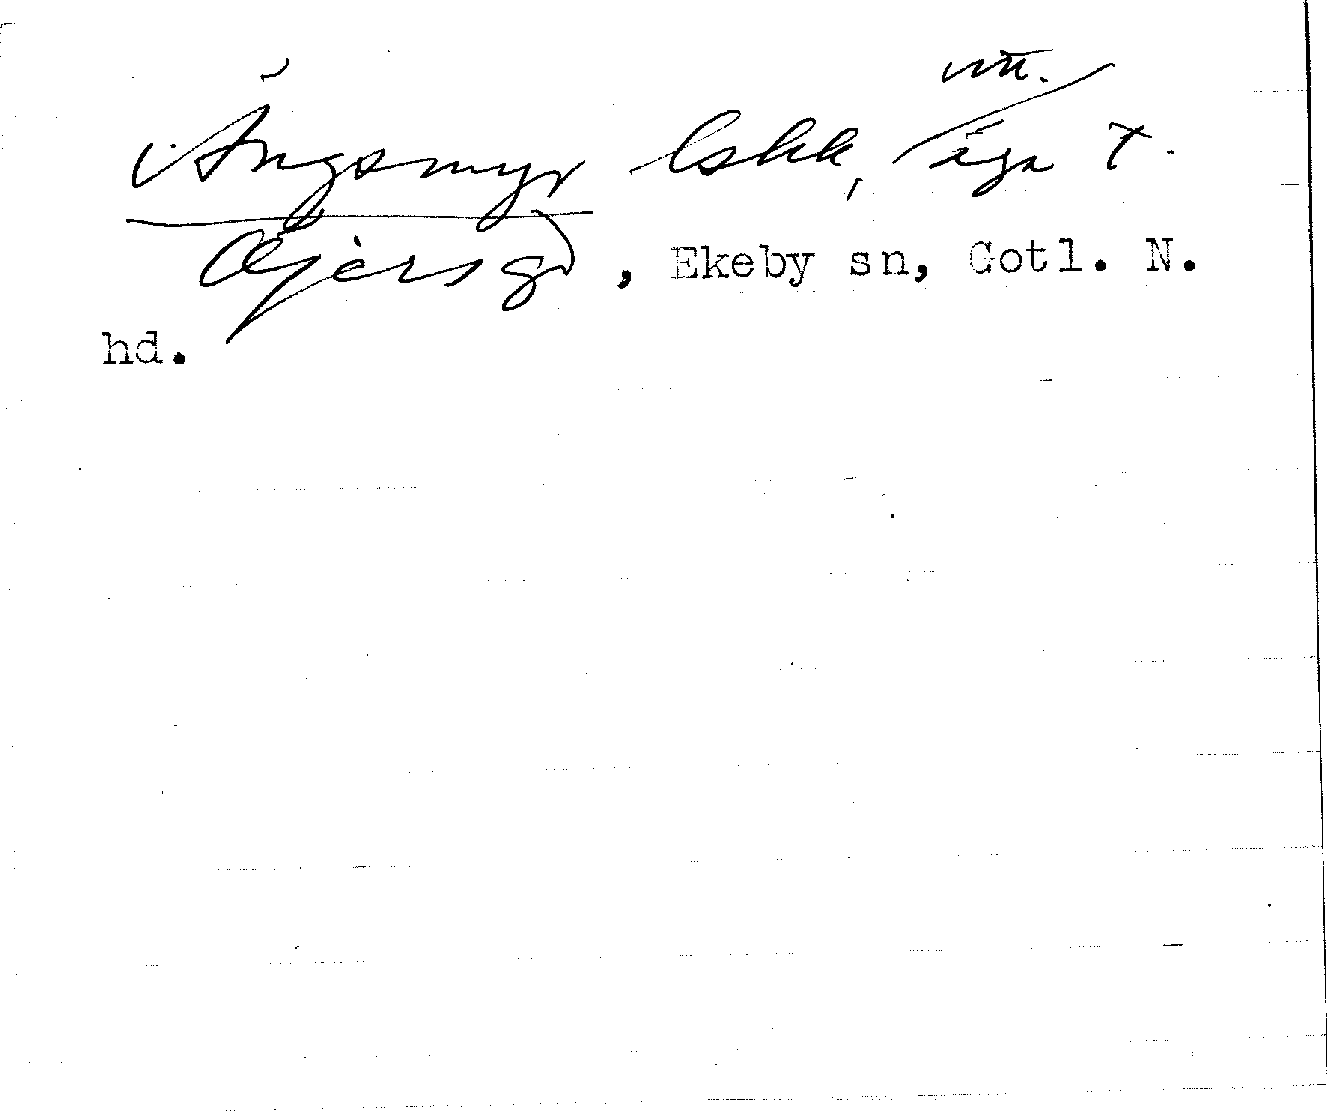 Ängsmyr lskk, äga t.
Öjersgd, Ekeby sn, Gotl. N.
hd.